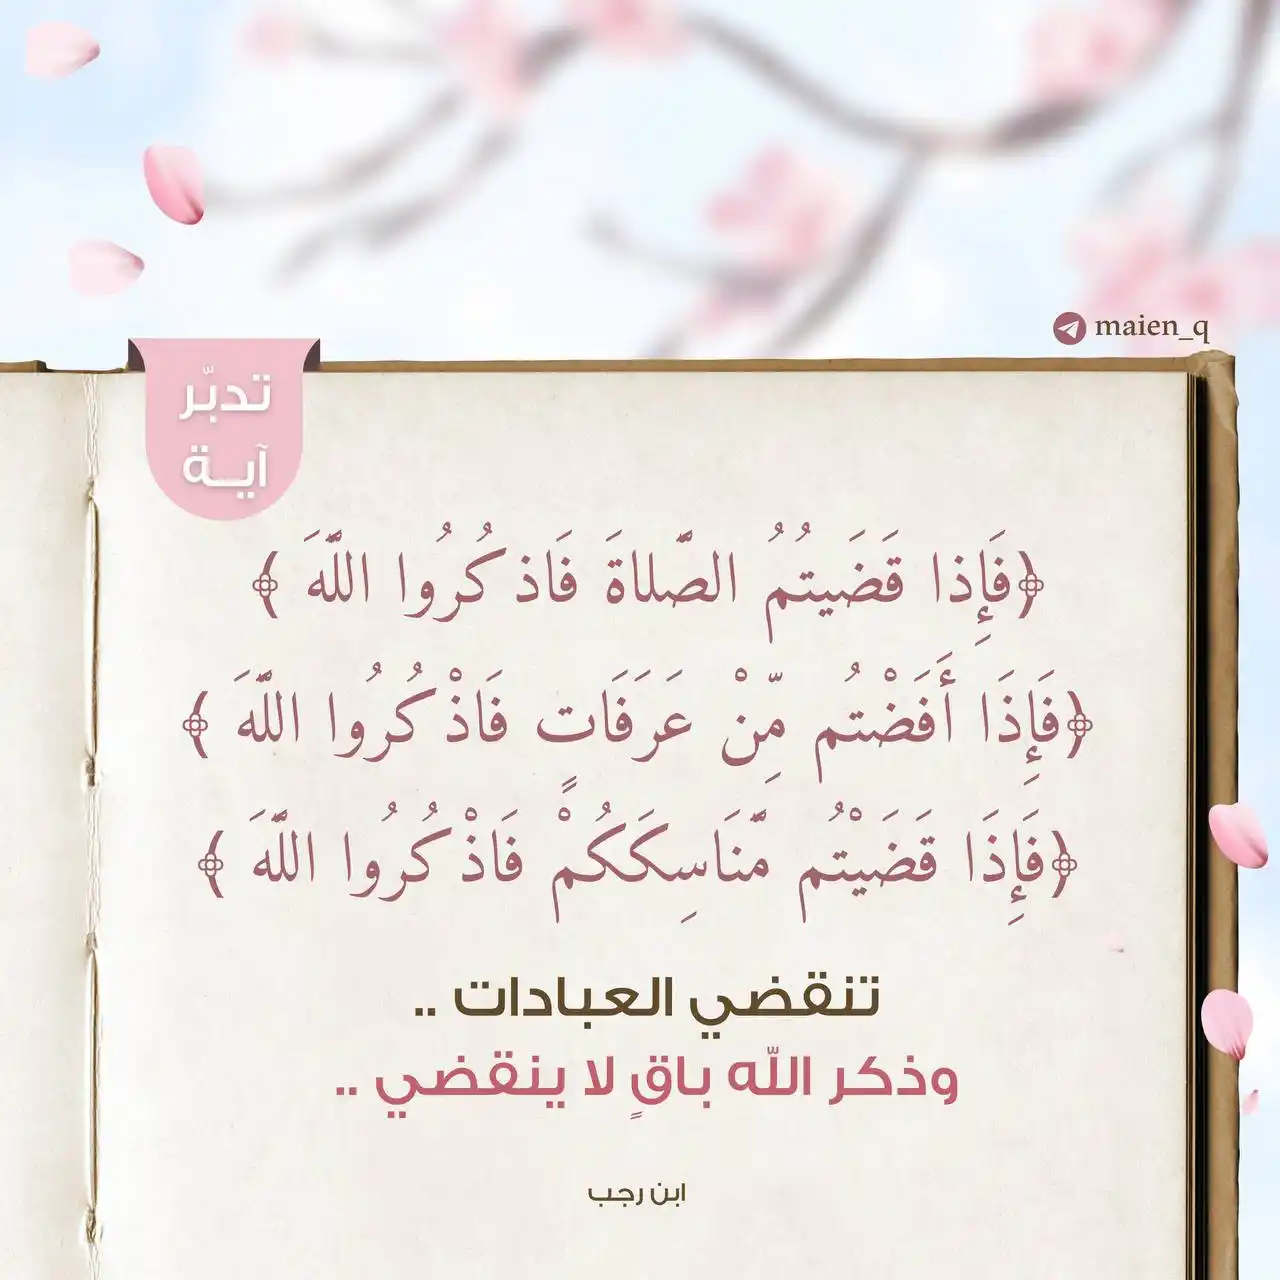 maien_q
تدبّر
آيـة
﴿فَإِذا قَضَيتُمُ الصَّلاةَ فَاذكُرُوا اللَّهَ ﴾
﴿فَإِذَا أَفَضْتُم مِّنْ عَرَفَاتٍ فَاذْكُرُوا اللَّهَ ﴾
﴿فَإِذَا قَضَيْتُم مَّنَاسِكَكُمْ فَاذْكُرُوا اللَّهَ ﴾
تنقضي العبادات ..
وذكر الله باقٍ لا ينقضي ..
ابن رجب